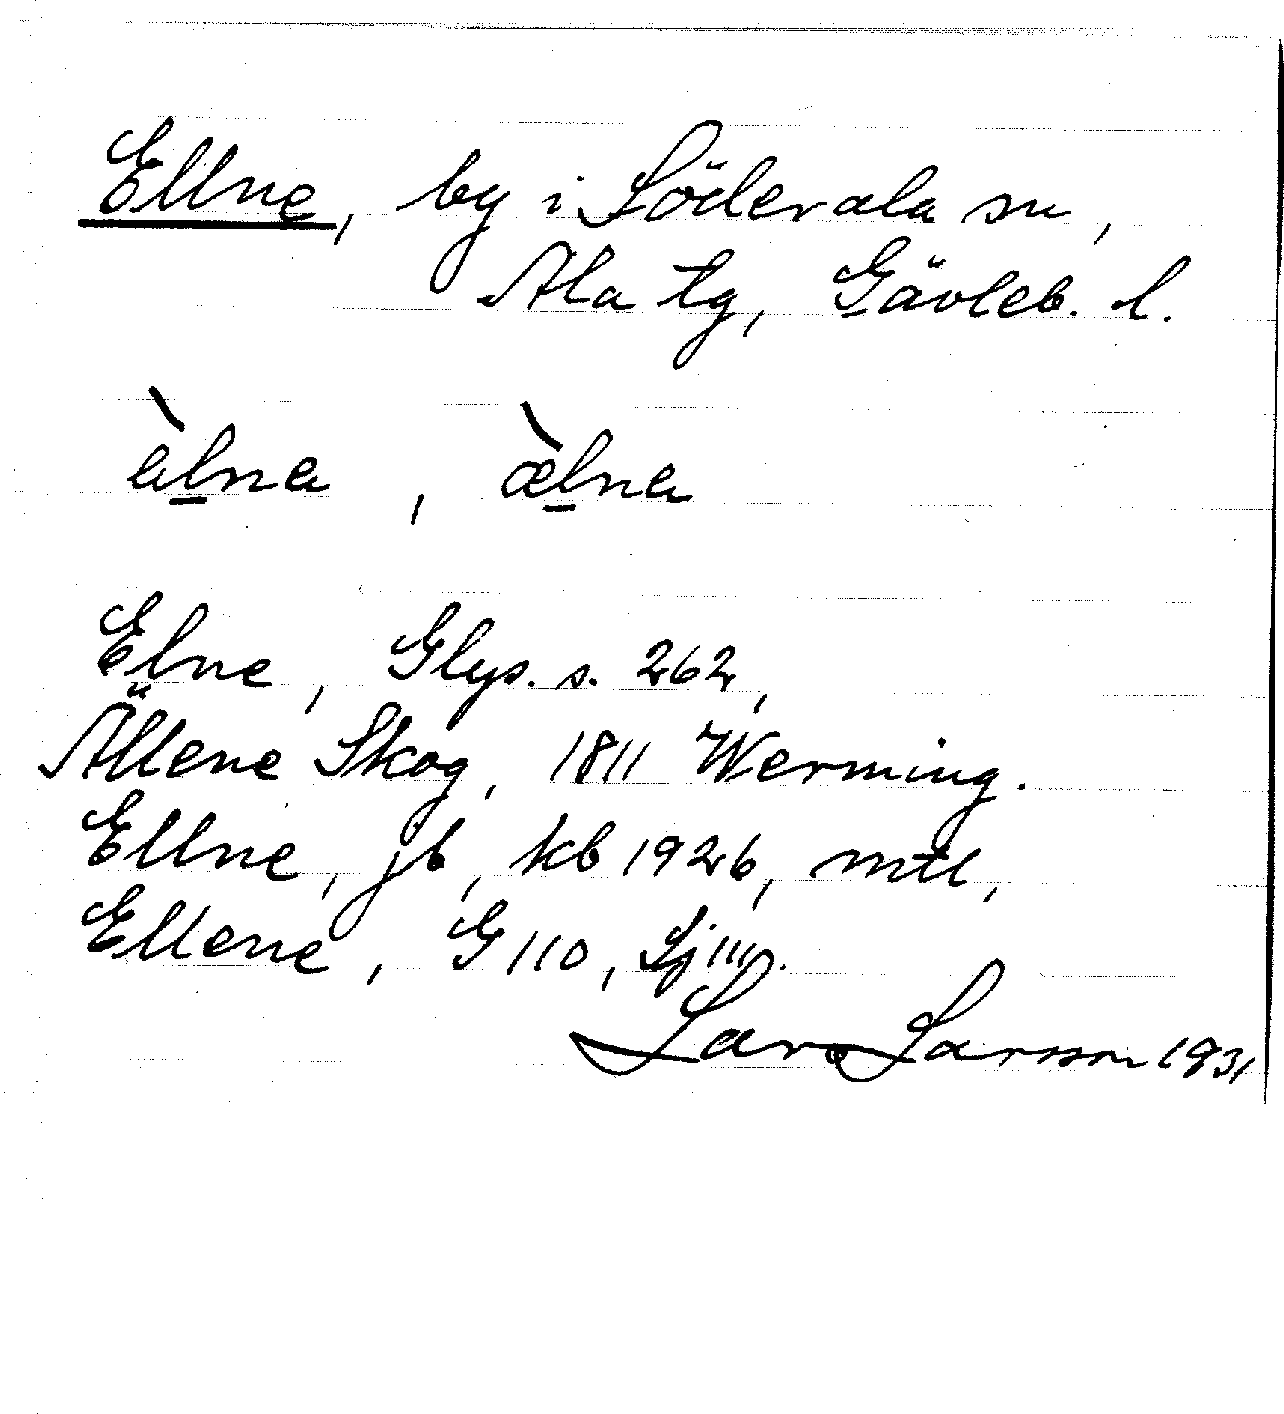 Ellne, by i Söderala sn,
Ala tg, Gävleb. l.
èlna, æ̀lna
Elne, Glys. s. 262,
Ällene Skog, 1811 Werming.
Ellne, jb, kb 1926, mtl,
Ellene, G 110, Sj 111.
Lars Larsson 1931